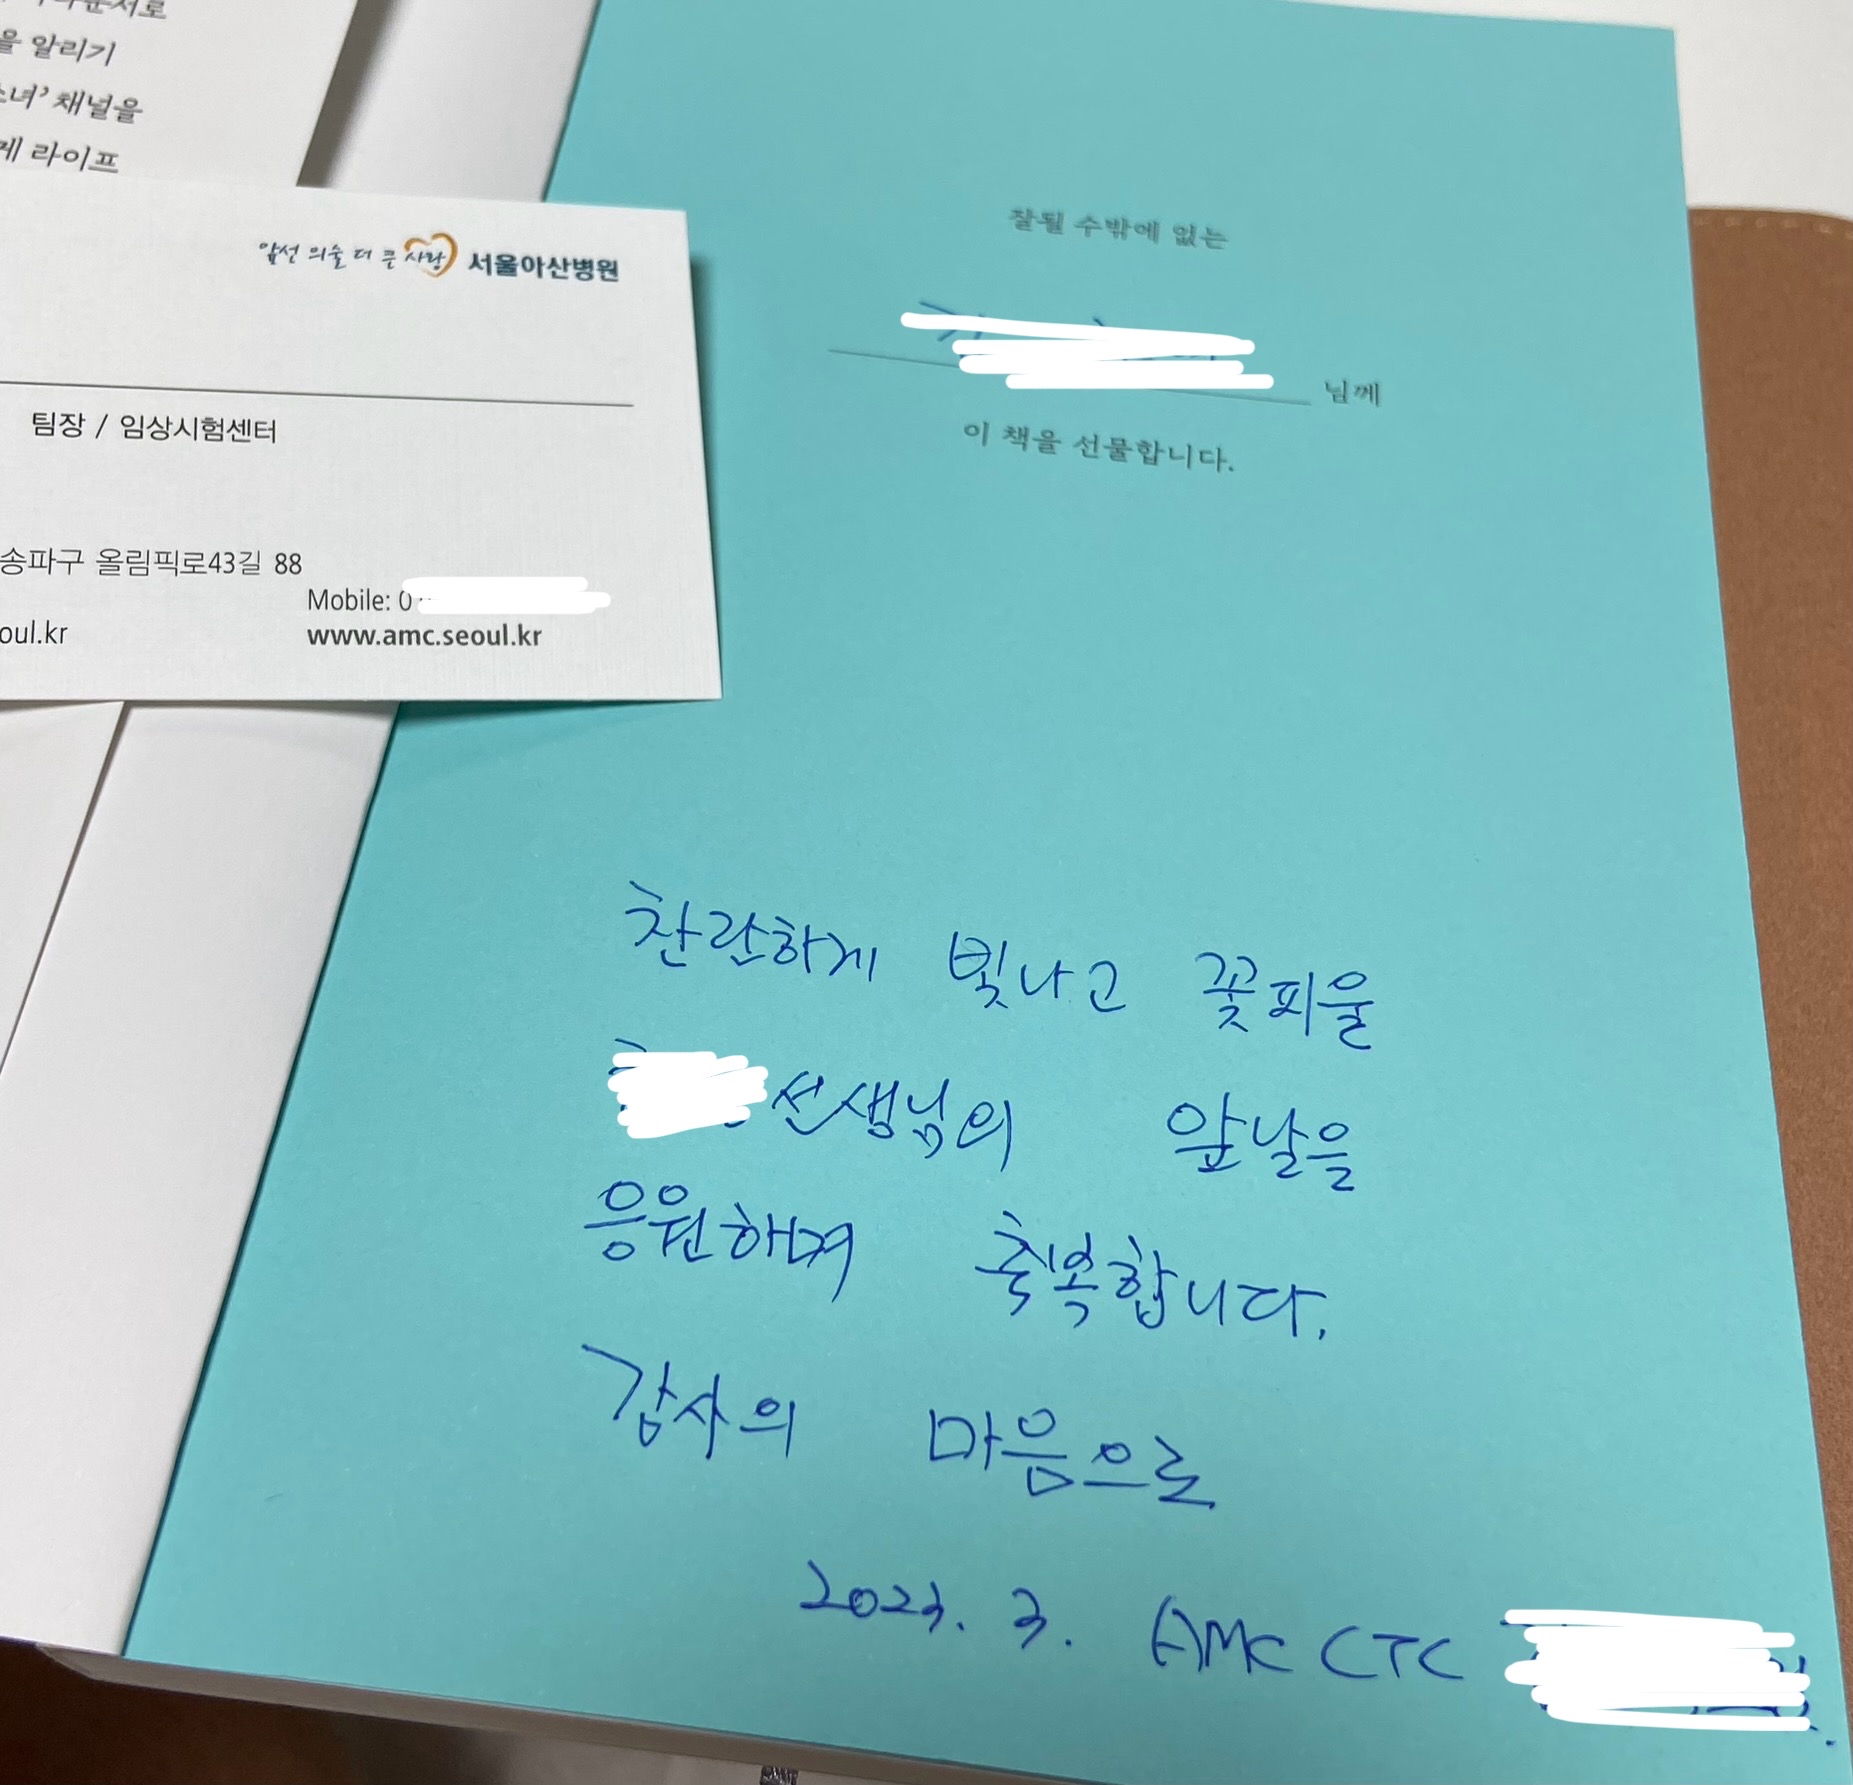 을 알리기
채널을
라이프
앞선 의술 더 큰 사랑 서울아산병원
팀장 / 임상시험센터
송파구 올림픽로43길 88
Mobile: 0
oul.kr
www.amc.seoul.kr
잘될 수밖에 없는
님께
이 책을 선물합니다.
찬란하게 빛나고 꽃피울
선생님의 앞날을
응원하며 축복합니다.
감사의 마음으로
2023. 3. AMC CTC